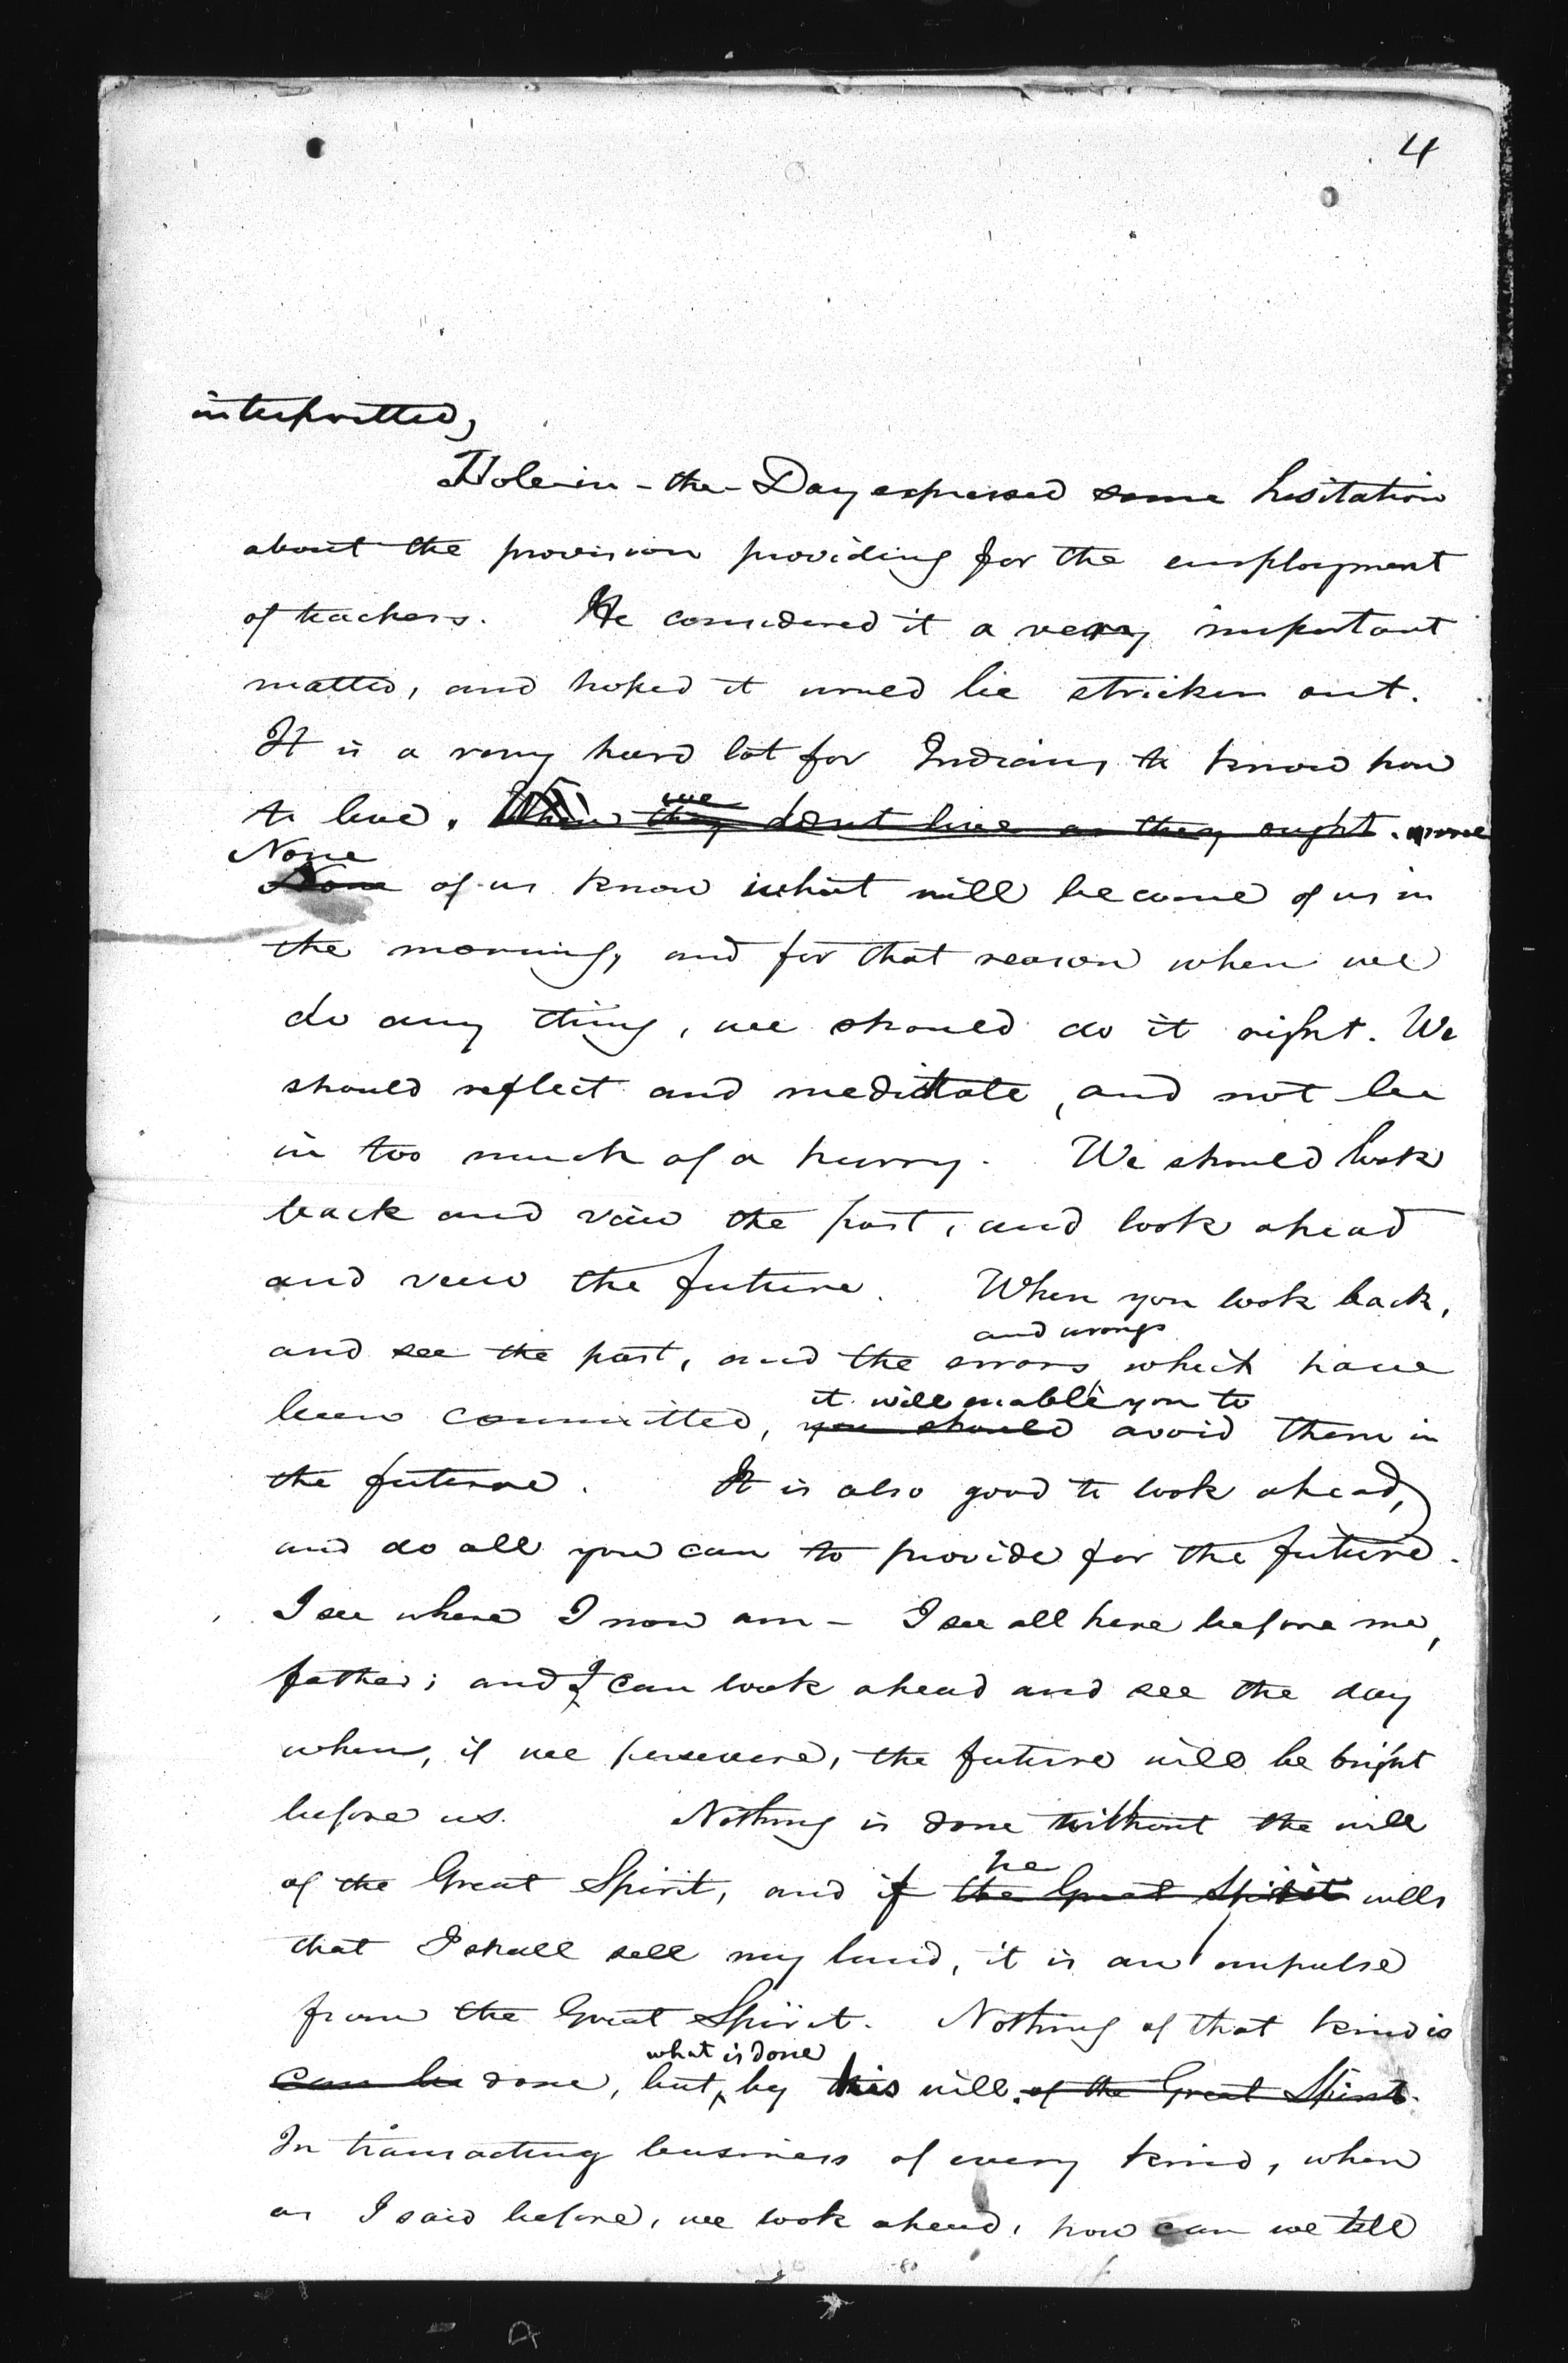 4
interpretted,
Hole-in-the-Day expressed some hesitation
about the provision providing for the employment
of teachers. He considered it a very important
matter, and hoped it would be stricken out.
It is a very hard lot for Indians to know how
to live. When they we dont live as they ought.
None
None of us know what will become of us in
the morning, and for that reason when we
do any thing, we should do it right. We
should reflect and meditate, and not be
in too much of a hurry. We should look
back and view the past, and look ahead
and view the future. When you look back,
and wrongs
and see the past, and the errors which have
it will enable you to
been committed, you should avoid them in
the future. It is also good to look ahead,
and do all you can to provide for the future.
I see where I now am - I see all here before me,
father; and I can look ahead and see the day
when, if we persevere, the future will be bright
before us. Nothing is done without the will
he
of the Great Spirit, and if the Great Spirit wills
that I shall sell my land, it is an impulse
from the Great Spirit. Nothing of that kind is
what is done
can be done, but by his will. of the Great Spirit.
In transacting business of every kind, when
as I said before, we look ahead, how can we tell